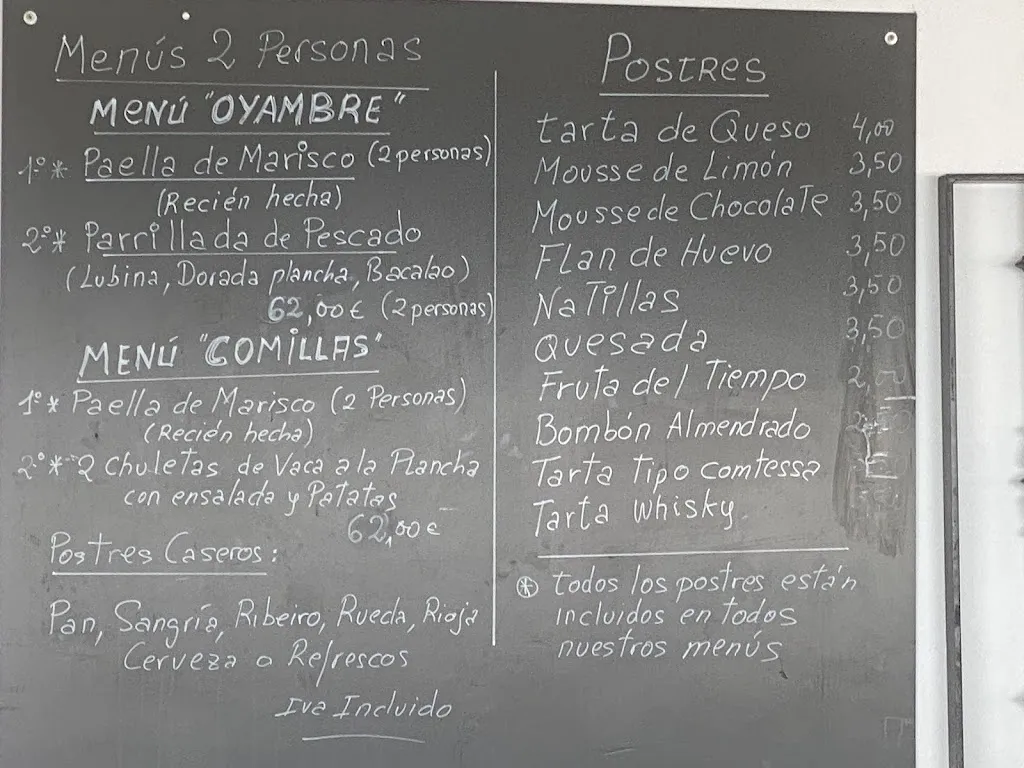 Menús 2 Personas
MENÚ "OYAMBRE"
1º* Paella de Marisco (2 personas)
(Recién hecha)
2º* Parrillada de Pescado
(Lubina, Dorada plancha, Bacalao)
62,00€ (2 personas)
MENÚ "COMILLAS"
1º* Paella de Marisco (2 Personas)
(Recién hecha)
2º*-2 Chuletas de Vaca a la Plancha
con ensalada y Patatas
62,00€
Postres Caseros:
Pan, Sangría, Ribeiro, Rueda, Rioja
Cerveza o Refrescos
Iva Incluido
POSTRES
tarta de Queso 4,00
Mousse de Limón 3,50
Mousse de Chocolate 3,50
Flan de Huevo 3,50
Natillas 3,50
Quesada 3,50
Fruta del Tiempo
Bombón Almendrado
Tarta Tipo comtessa
Tarta Whisky.
* todos los postres están
incluidos en todos
nuestros menús